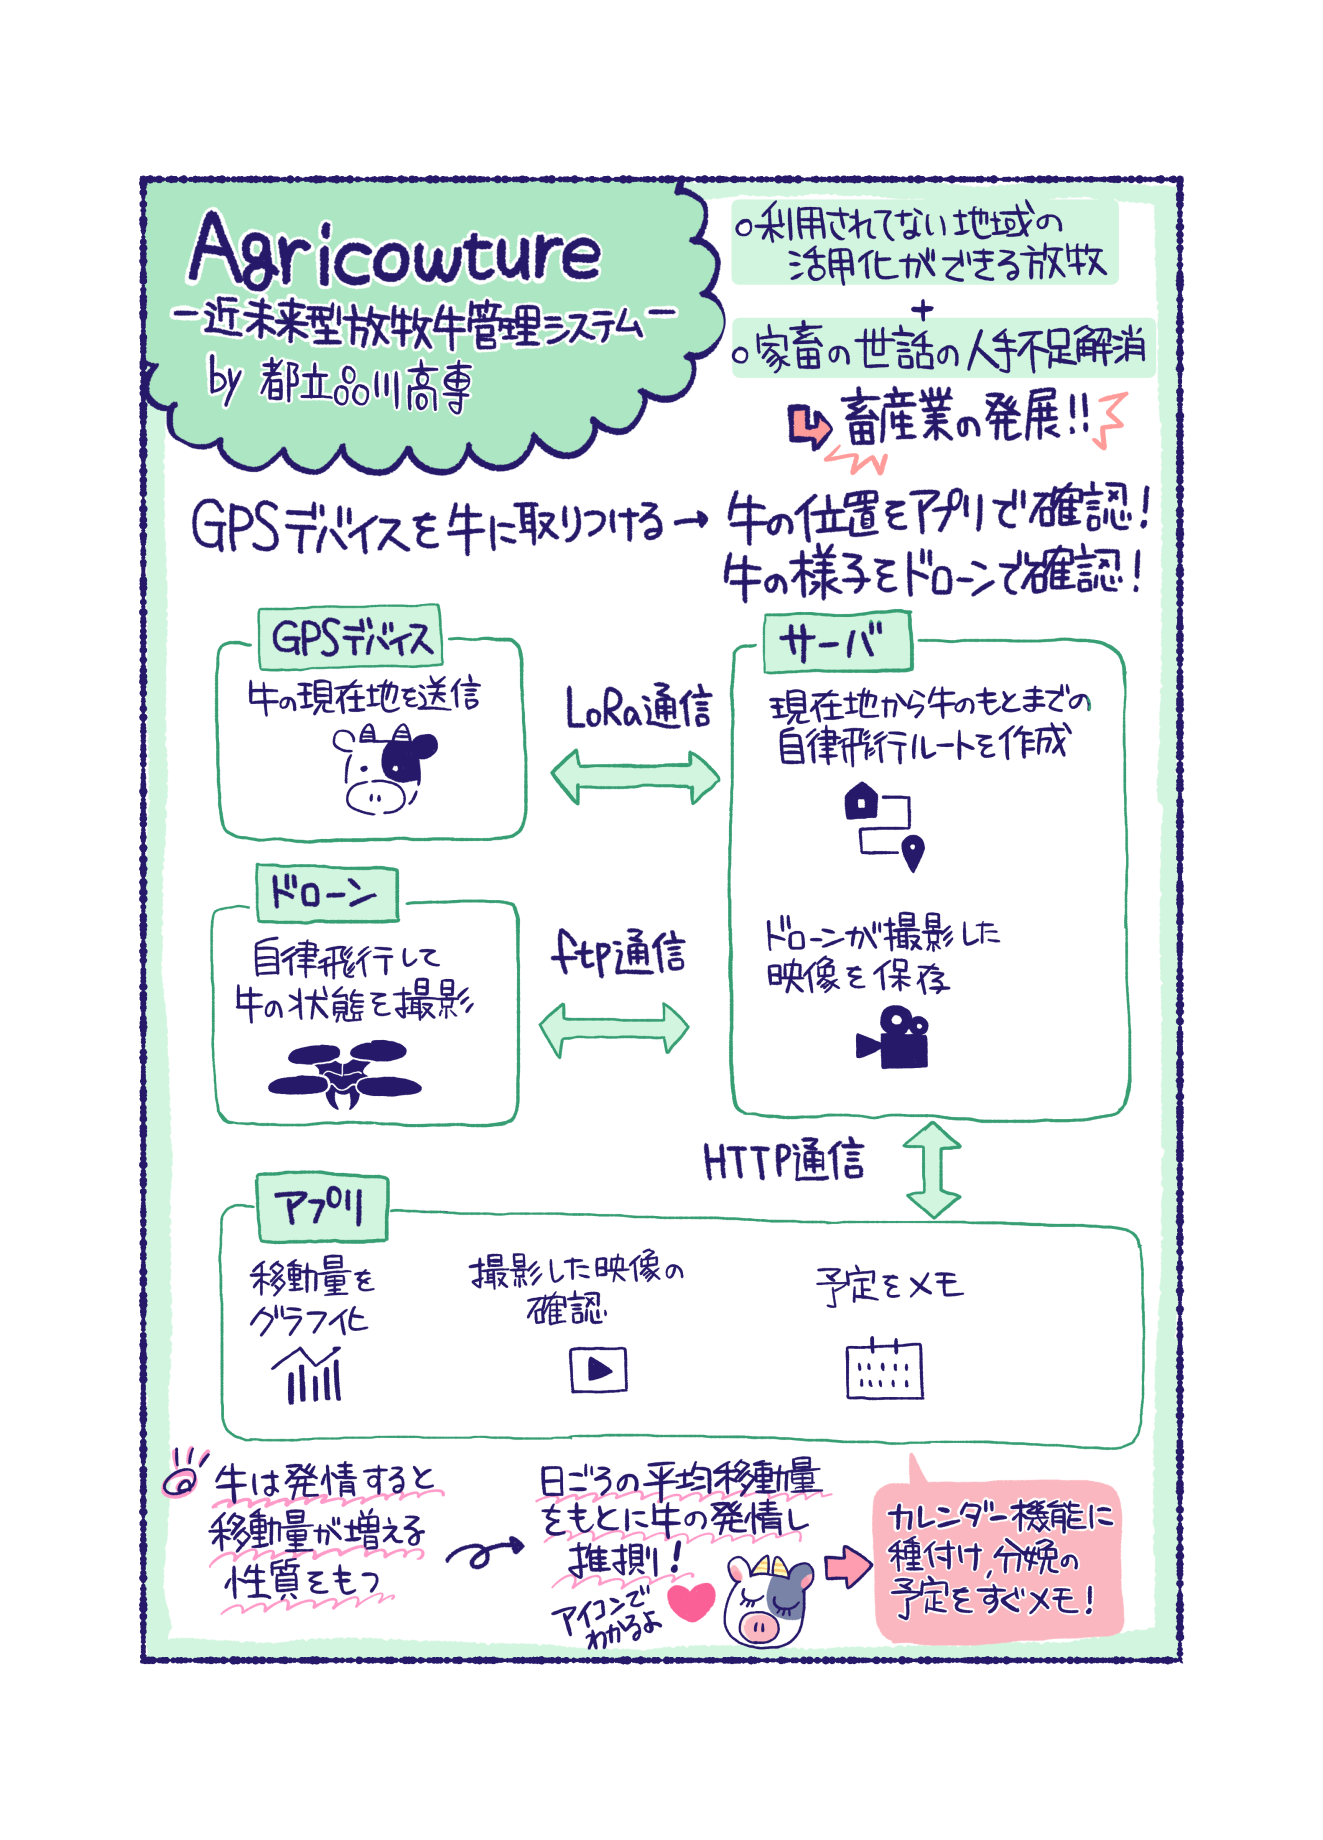 Agricowture
－近未来型放牧牛管理システム－
by 都立品川高専
○利用されてない地域の
活用化ができる放牧
+
○家畜の世話の人手不足解消
畜産業の発展!!
GPSデバイスを牛に取りつける→
牛の位置をアプリで確認!
牛の様子をドローンで確認!
GPSデバイス
牛の現在地を送信
LoRa通信
サーバ
現在地から牛のもとまでの
自律飛行ルートを作成
ドローンが撮影した
映像を保存
ドローン
自律飛行して
牛の状態を撮影
ftp通信
HTTP通信
アプリ
移動量を
グラフ化
撮影した映像の
確認
予定をメモ
牛は発情すると
移動量が増える
性質をもつ
日ごろの平均移動量
をもとに牛の発情し
推測!
アイコンで
わかるよ
カレンダー機能に
種付け,分娩の
予定をすぐメモ!